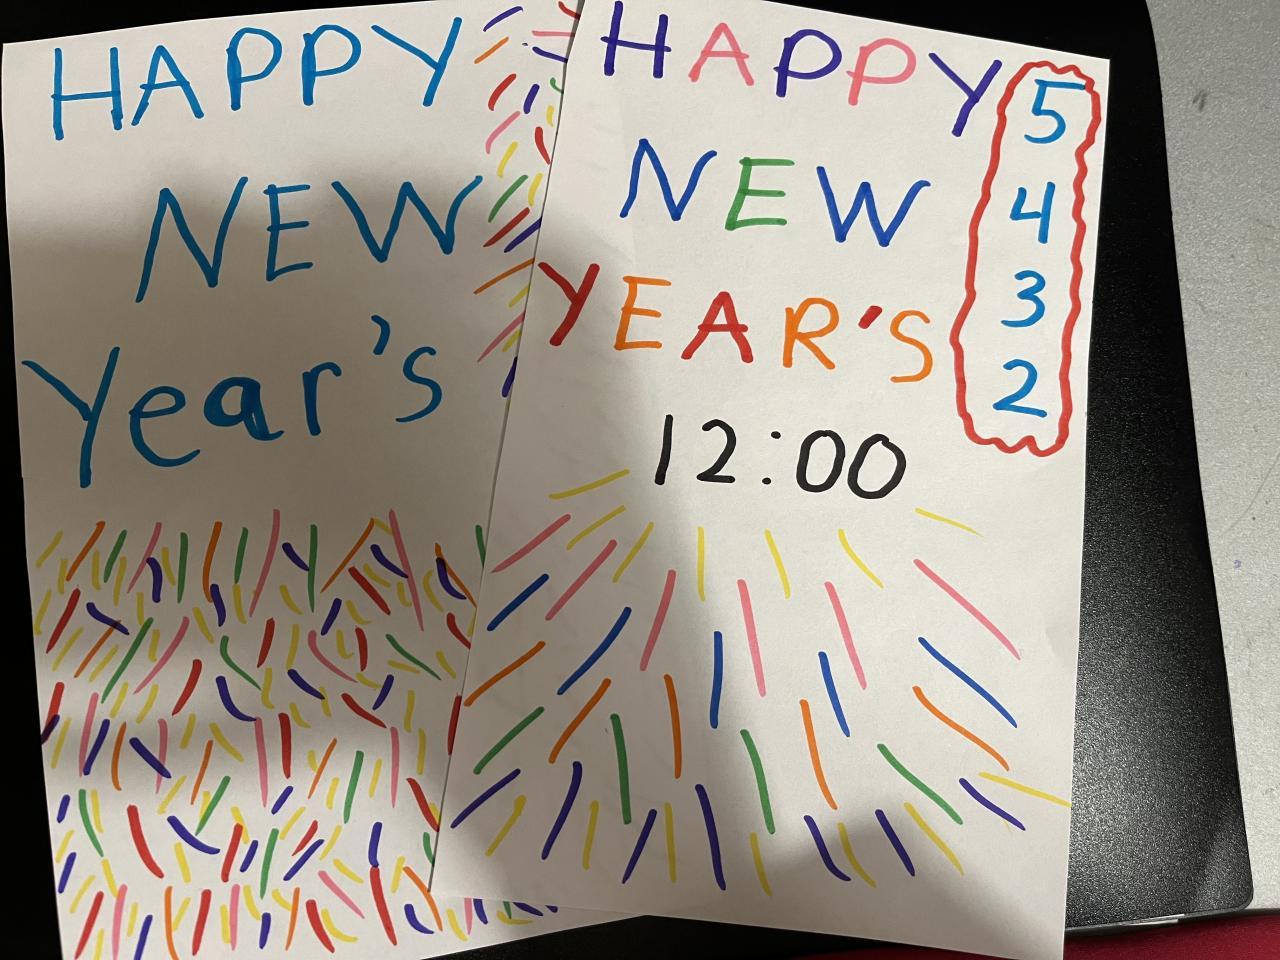 HAPPY
NEW
Year's
HAPPY
NEW
YEAR'S
12:00
5
4
3
2